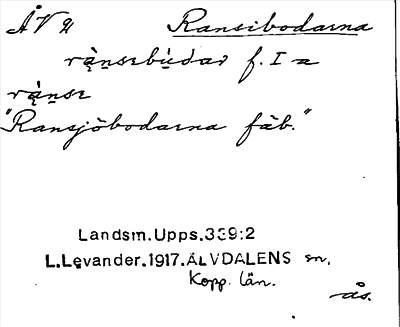 ÅV 21 Ransibodarna
rạ̀nsɩbùdar f. I a
rạ̀nsɩ
"Ransjöbodarna fäb."
Landsm.Upps.339:2
L.Levander.1917.ÄLVDALENS sn.
Kopp. län.
ås.